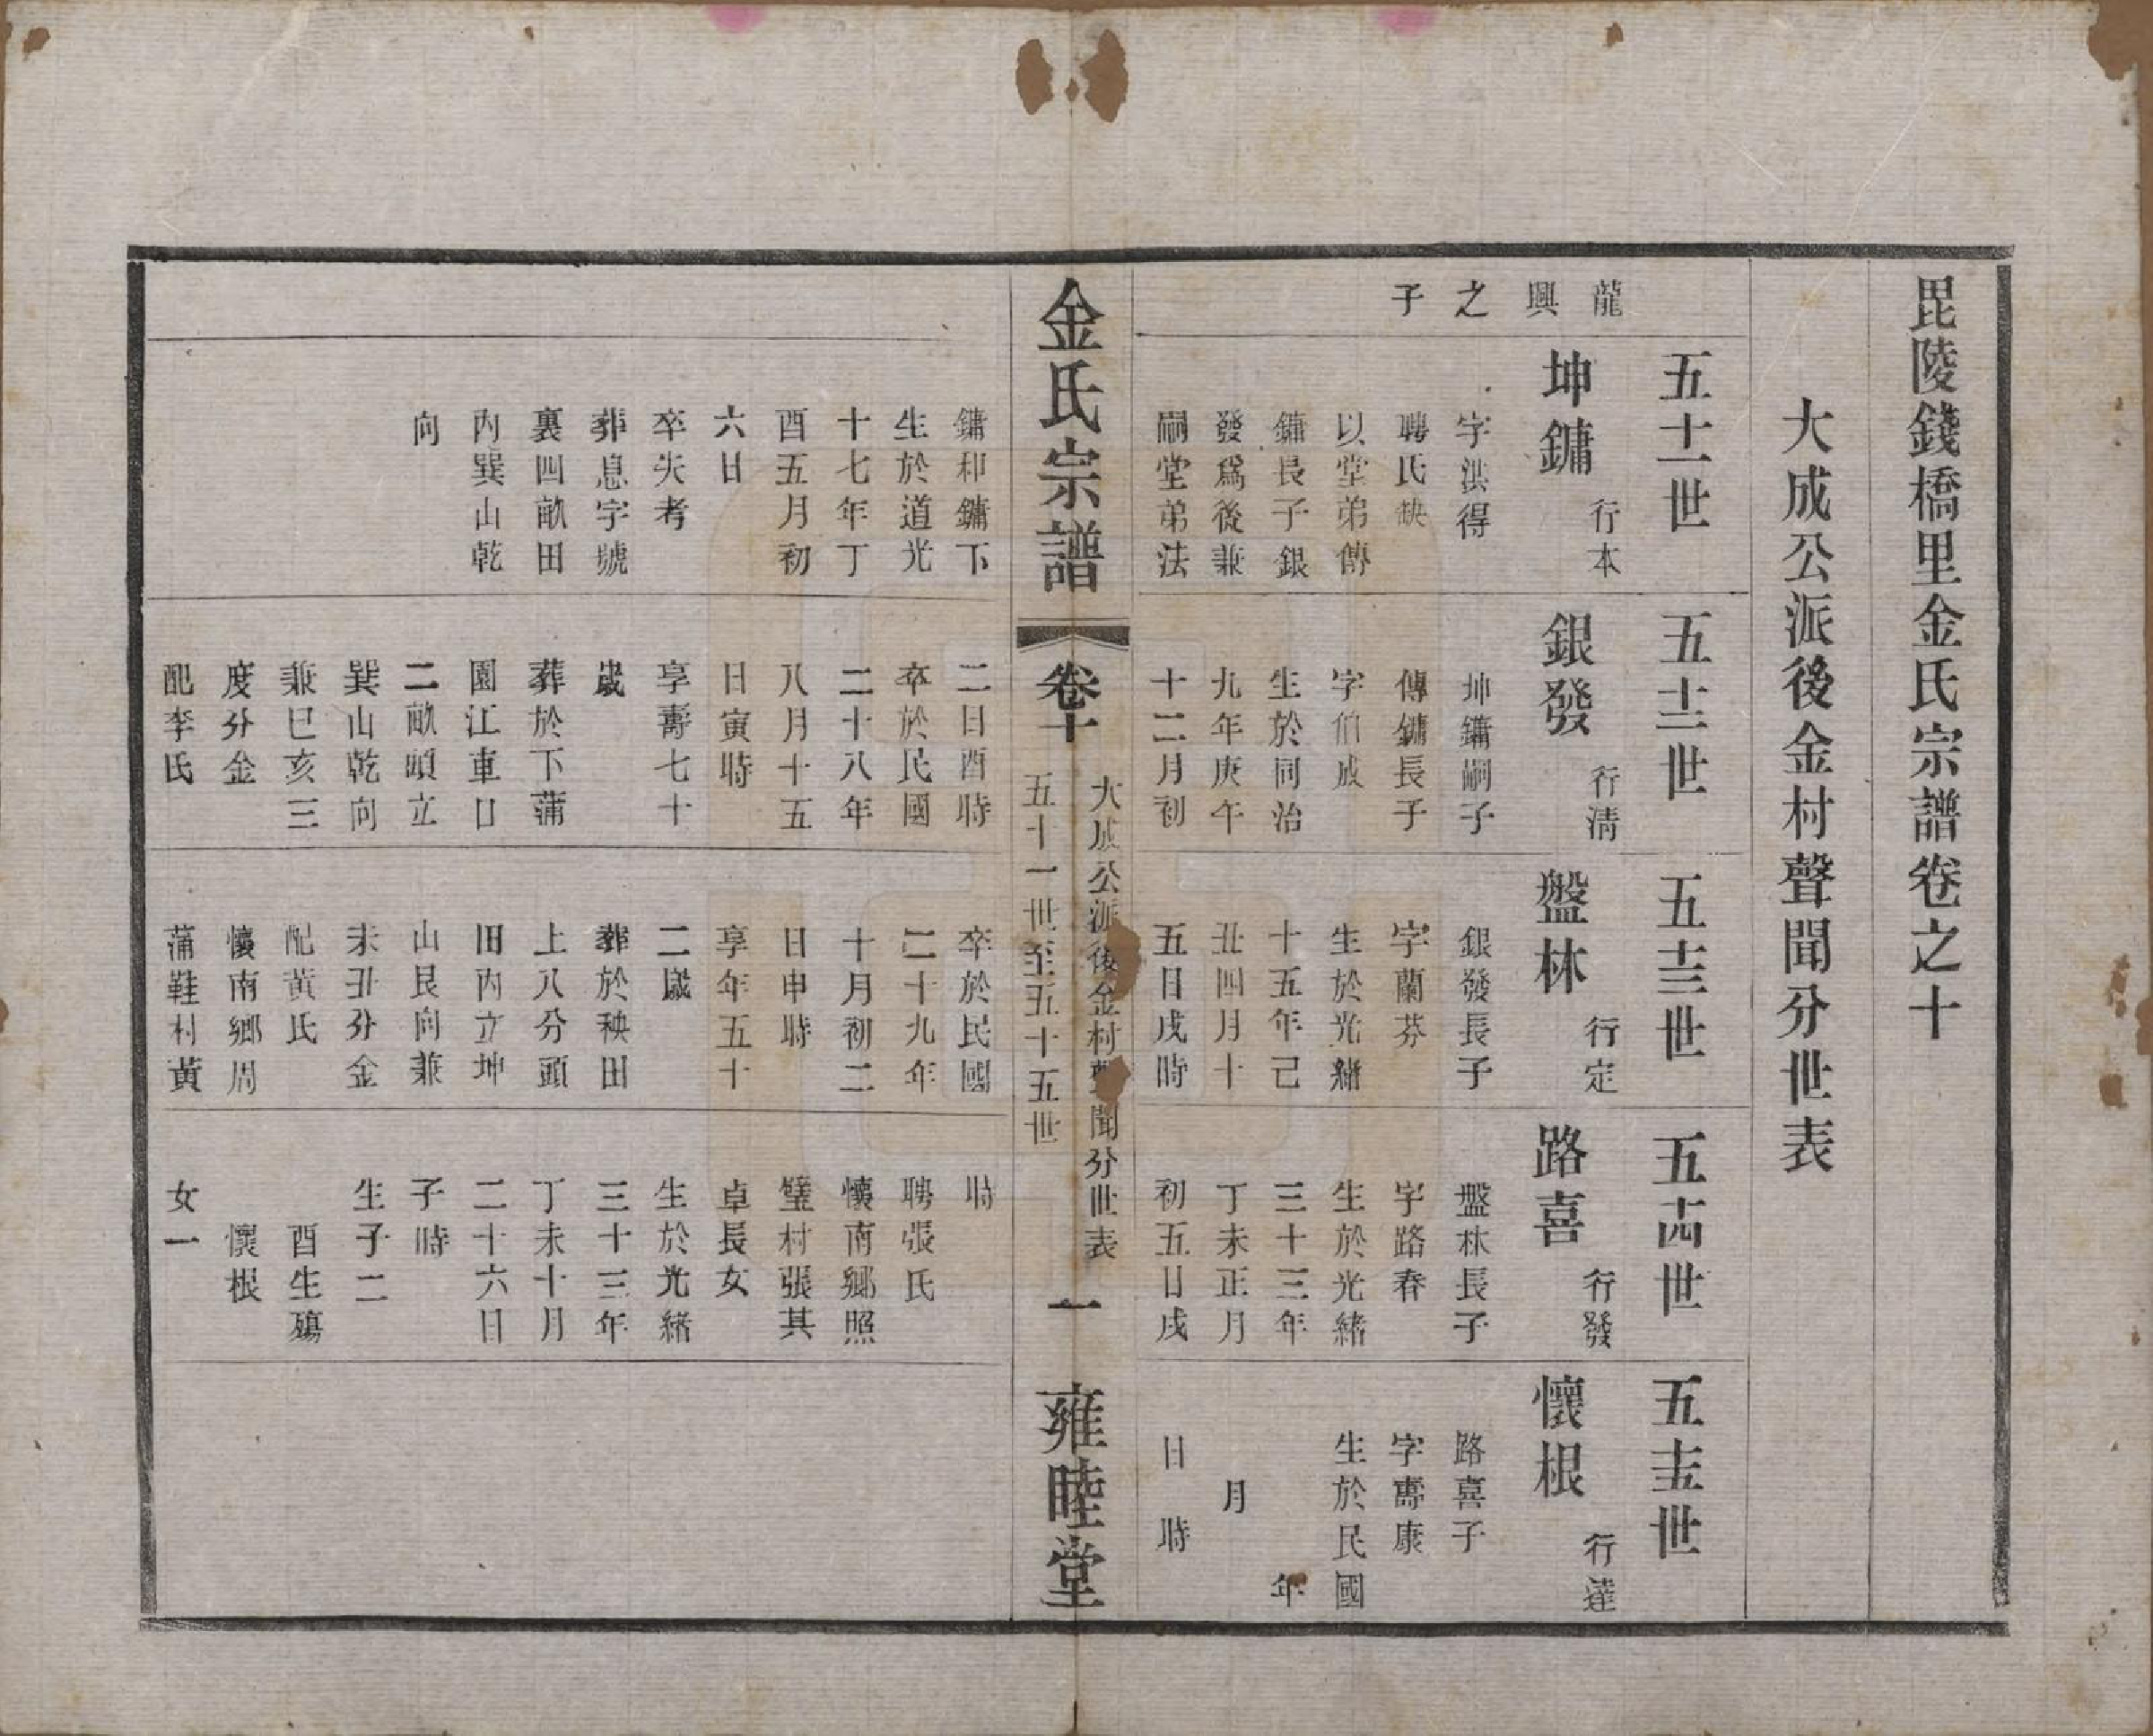 毘陵錢橋里金氏宗譜卷之十
大成公派後金村聲聞分世表
龍
興
之
子
五十一世
坤鏞
行本
字洪得
聘氏缺
以堂弟傳
鏞長子銀
發爲後兼
嗣堂弟法
鏞和鏞下
生於道光
十七年丁
酉五月初
六日
卒失考
葬息字號
裏四畝田
內巽山乾
向
五十二世
銀發
行清
坤鏞嗣子
傳鏞長子
字伯成
生於同治
九年庚午
十二月初
二日酉時
卒於民國
二十八年
八月十五
日寅時
享壽七十
歲
葬於下蒲
園江車口
二畝頭立
巽山乾向
兼巳亥三
度分金
配李氏
五十三世
盤林
行定
銀發長子
字蘭芬
生於光緒
十五年己
丑四月十
五日戌時
卒於民國
二十九年
十月初二
日申時
享年五十
二歲
葬於秧田
上八分頭
田內立坤
山艮向兼
未丑分金
配黃氏
懷南鄉周
蒲鞋村黃
五十四世
路喜
行發
盤林長子
字路春
生於光緒
三十三年
丁未正月
初五日戌
時
聘張氏
懷南鄉照
璧村張其
卓長女
生於光緒
三十三年
丁未十月
二十六日
子時
生子二
酉生殤
懷根
女一
五十五世
懷根
行達
路喜子
字壽康
生於民國
年
月
日 時
金氏宗譜
卷十
大成公派後金村聞分世表
五十一世至五十五世
一
雍睦堂